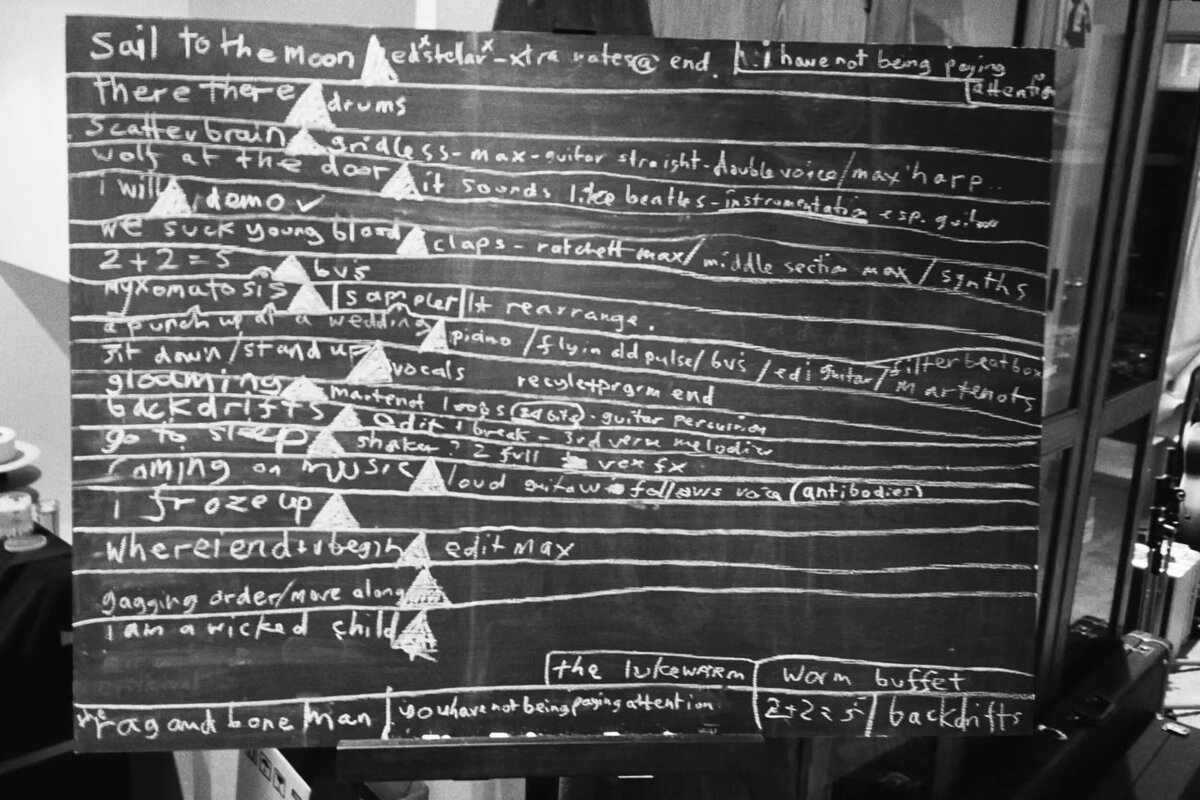 sail to the moon ed*stelar*-xtra notes@ end. : i have not being paying attention
there there drums
scatterbrain gridless-max-guitar straight-double voice/max'harp..
wolf at the door it sounds like beatles-instrumentation esp. guitar
i will demo ✓
we suck young blood claps-ratchett max/middle section max/synths
2+2=5 bvs
myxomatosis sampler 1st rearrange.
a punch up at a wedding piano/fly in old pulse/bvs/ed guitar/filter beatbox martenots
sit down/stand up vocals recycle+prgrm end
gloaming martenot loops · guitar percussion
backdrifts edit + break - 3rd verse melodies
go to sleep shaker? 2 full vox fx
coming on music loud guitar follows voice (antibodies)
i froze up
where i end + u begin edit max
gagging order/move along
i am a wicked child
the lukewarm worm buffet
the rag and bone man you have not being paying attention 2+2=5 backdrifts